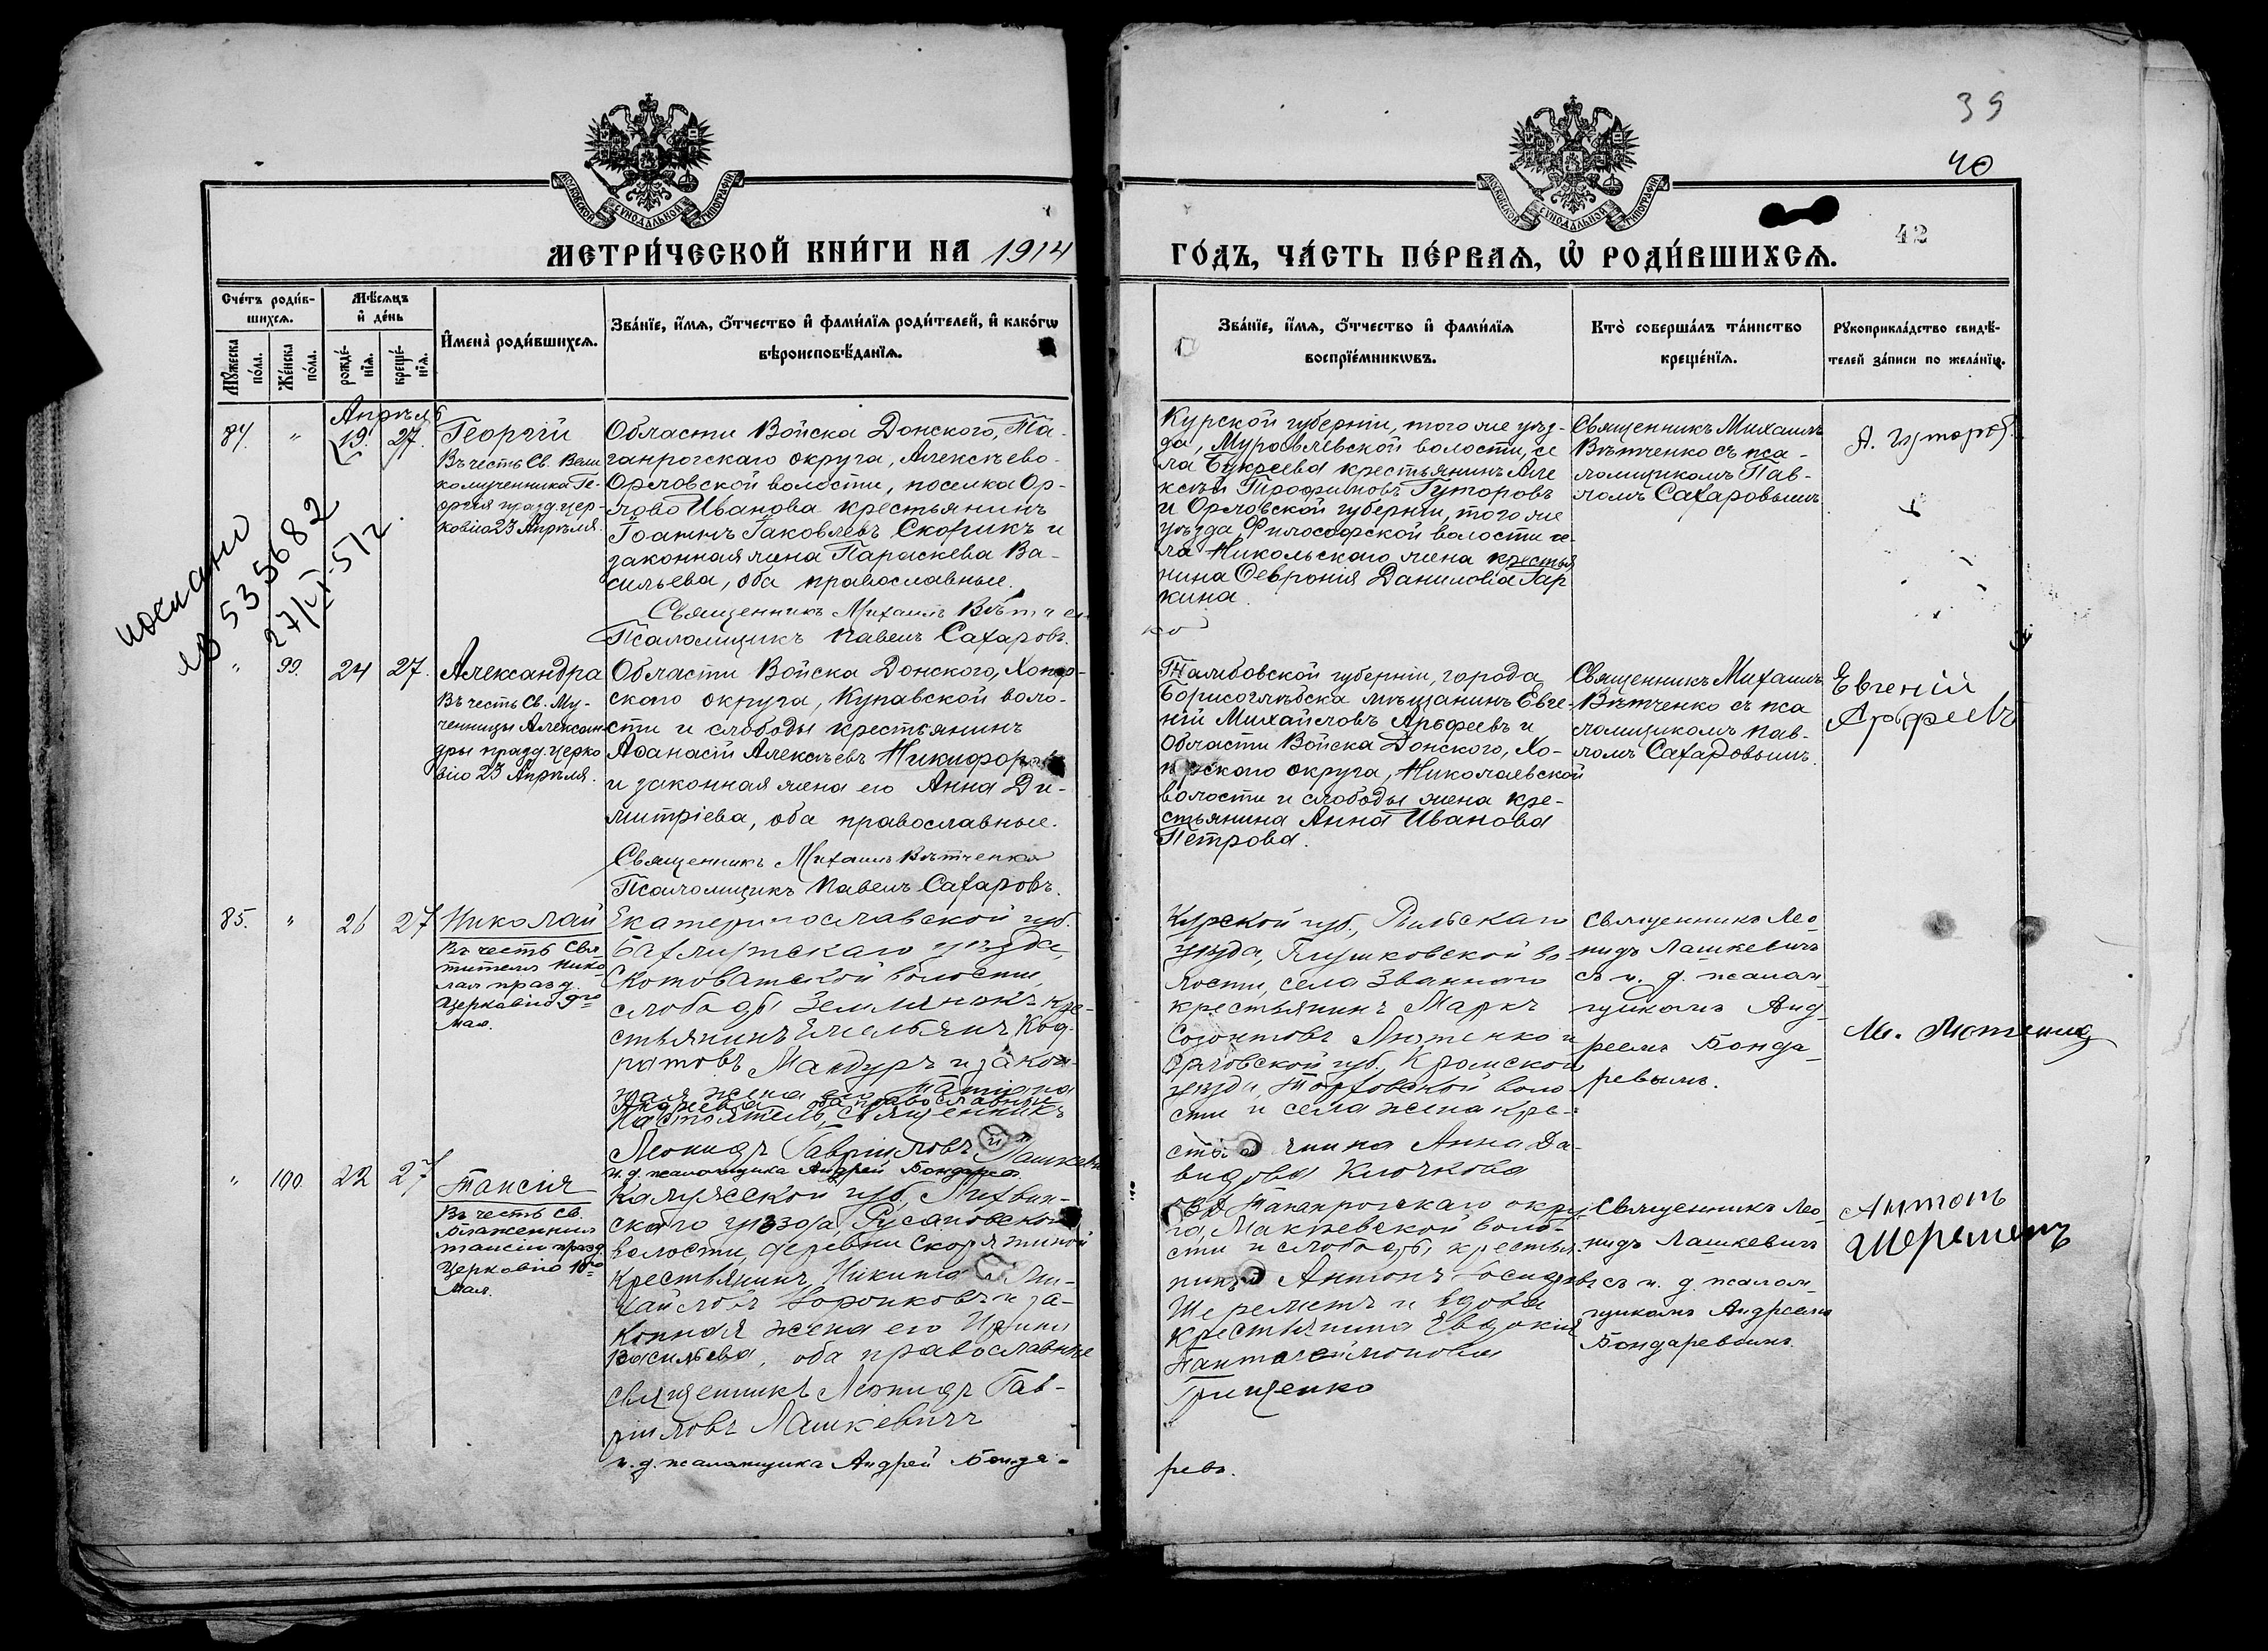 39
40
42
МОСКОВСКОЙ СѴНОДАЛЬНОЙ ТИПОГРАФІИ
МОСКОВСКОЙ СѴНОДАЛЬНОЙ ТИПОГРАФІИ
МЕТРИ́ЧЕСКОЙ КНИ́ГИ НА 1914
ГО́ДЪ, ЧА́СТЬ ПЕ́РВАѦ, Ѡ҆ РОДИ́ВШИХСѦ.
Сче́тъ роди́в-
шихсѧ.
Мѣ́сѧцъ
и҆ де́нь
Мꙋ́жеска
по́ла.
Же́нска
по́ла.
рожде́-
нїѧ.
креще́-
нїѧ.
И҆мена̀ роди́вшихсѧ.
Зва́нїе, и҆́мѧ, ѻ҆́тчество и҆ фами́лїѧ роди́телей, и҆ како́гѡ
вѣроисповѣ́данїѧ.
Зва́нїе, и҆́мѧ, ѻ҆́тчество и҆ фами́лїѧ
воспрїе́мникѡвъ.
Кто̀ соверша́лъ та́инство
креще́нїѧ.
Рꙋкоприкла́дство свидѣ́-
телей за́писи по жела́нїю.
Апрѣль
84. " 19. 27. Георгій
Въ честь Св. Вели
комученника Ге-
оргія празд. цер-
ковію 23 Апрѣля.
Области Войска Донского, Та-
ганрогскаго округа, Алексѣево-
Орловской волости, поселка Ор-
лово Иванова крестьянинъ
Іоаннъ Іаковлевъ Скофикъ и
законная жена Параскева Ва-
сильева, оба православные.
Священникъ Михаилъ Вѣтчен
Псаломщикъ Павелъ Сахаровъ.
Курской губерніи, того же уѣз-
да, Муровлевской волости, се
ла Букреева крестьянинъ Але
ксѣй Трофимовъ Гуторовъ
и Орловской губерніи, того же
уѣзда, Философской волости се-
ла Никольскаго жена крестья
нина Февронія Данилова Гар
кина.
ко
Священникъ Михаилъ
Вѣтченко съ пса-
ломщикомъ Пав-
ломъ Сахаровымъ
А. Гуторов
№ 535682
" 99. 24 27. Александра
Въ честь Св. Му-
ченницы Алексан
дры празд. церко
вію 23 Апрѣля.
Области Войска Донского, Хопер-
скаго округа, Купавской воло-
сти и слободы крестьянинъ
Аѳанасій Алексѣевъ Никифоровъ
и законная жена его Анна Ди-
митріева, оба православные.
Священникъ Михаилъ Вѣтченко
Псаломщикъ Павелъ Сахаровъ.
Тамбовской губерніи, города
Борисоглѣбска мѣщанинъ Евге-
ній Михайловъ Арефеевъ и
Области Войска Донского, Хо-
перскаго округа, Николаевской
волости и слободы жена кре-
стьянина Анна Иванова
Петрова.
Священникъ Михаилъ
Вѣтченко съ пса
ломщикомъ Пав-
ломъ Сахаровымъ.
Евгеній
Арефеевъ
85. " 26 27 Николай
Въ честь Свя
тителя Нико
лая празд.
Церковію 9го
Мая.
Екатеринославской губ.
Бахмутскаго уѣзда,
Скотоватской волости,
слободы Землянокъ кре-
стьянинъ Емельянъ Код-
ратовъ Мандуръ и закон-
ная жена его Татіана
Андреева оба православные
Настоятель, священникъ
Леонидъ Гавріиловъ Лашкевич
и. д. псаломщика Андрей Бондарев
Курской губ., Рыльскаго
уѣзда, Глушковской во-
лости, села Званнаго
крестьянинъ Маркъ
Созонтовъ Лютенко и
Орловской губ., Кромскаго
уѣзда, воло
сти и села жена кре-
стьянина Анна Да-
видова Клочкова
Священникъ Лео-
нидъ Лашкевичъ
съ и. д. псалом
щикомъ Анд-
реемъ Бонда-
ревымъ.
М. Лютенко
" 100 22 27 Таисія
Въ честь Св.
Блаженныя
Таисіи празд
Церковію 10го
Мая.
Калужской губ., Лихвин-
скаго уѣзда, Русановской
волости, деревни
крестьянинъ Никита Ми-
хайловъ Воронковъ и за-
конная жена его Ирина
Васильева, оба православные
Священникъ Леонидъ Гав-
ріиловъ Лашкевичъ
и. д. псаломщика Андрей Бонда-
О.В.Д. Таганрогскаго окру-
га, Макѣевской воло-
сти и слободы крестья-
нинъ Антонъ Іосифовъ
Шереметъ и вдова
крестьянина Евдокія
Пантелеймонова
Грищенко
ревъ.
Священникъ Лео-
нидъ Лашкевичъ
съ и. д. псалом-
щикомъ Андреемъ
Бондаревымъ.
Антонъ
Шереметъ